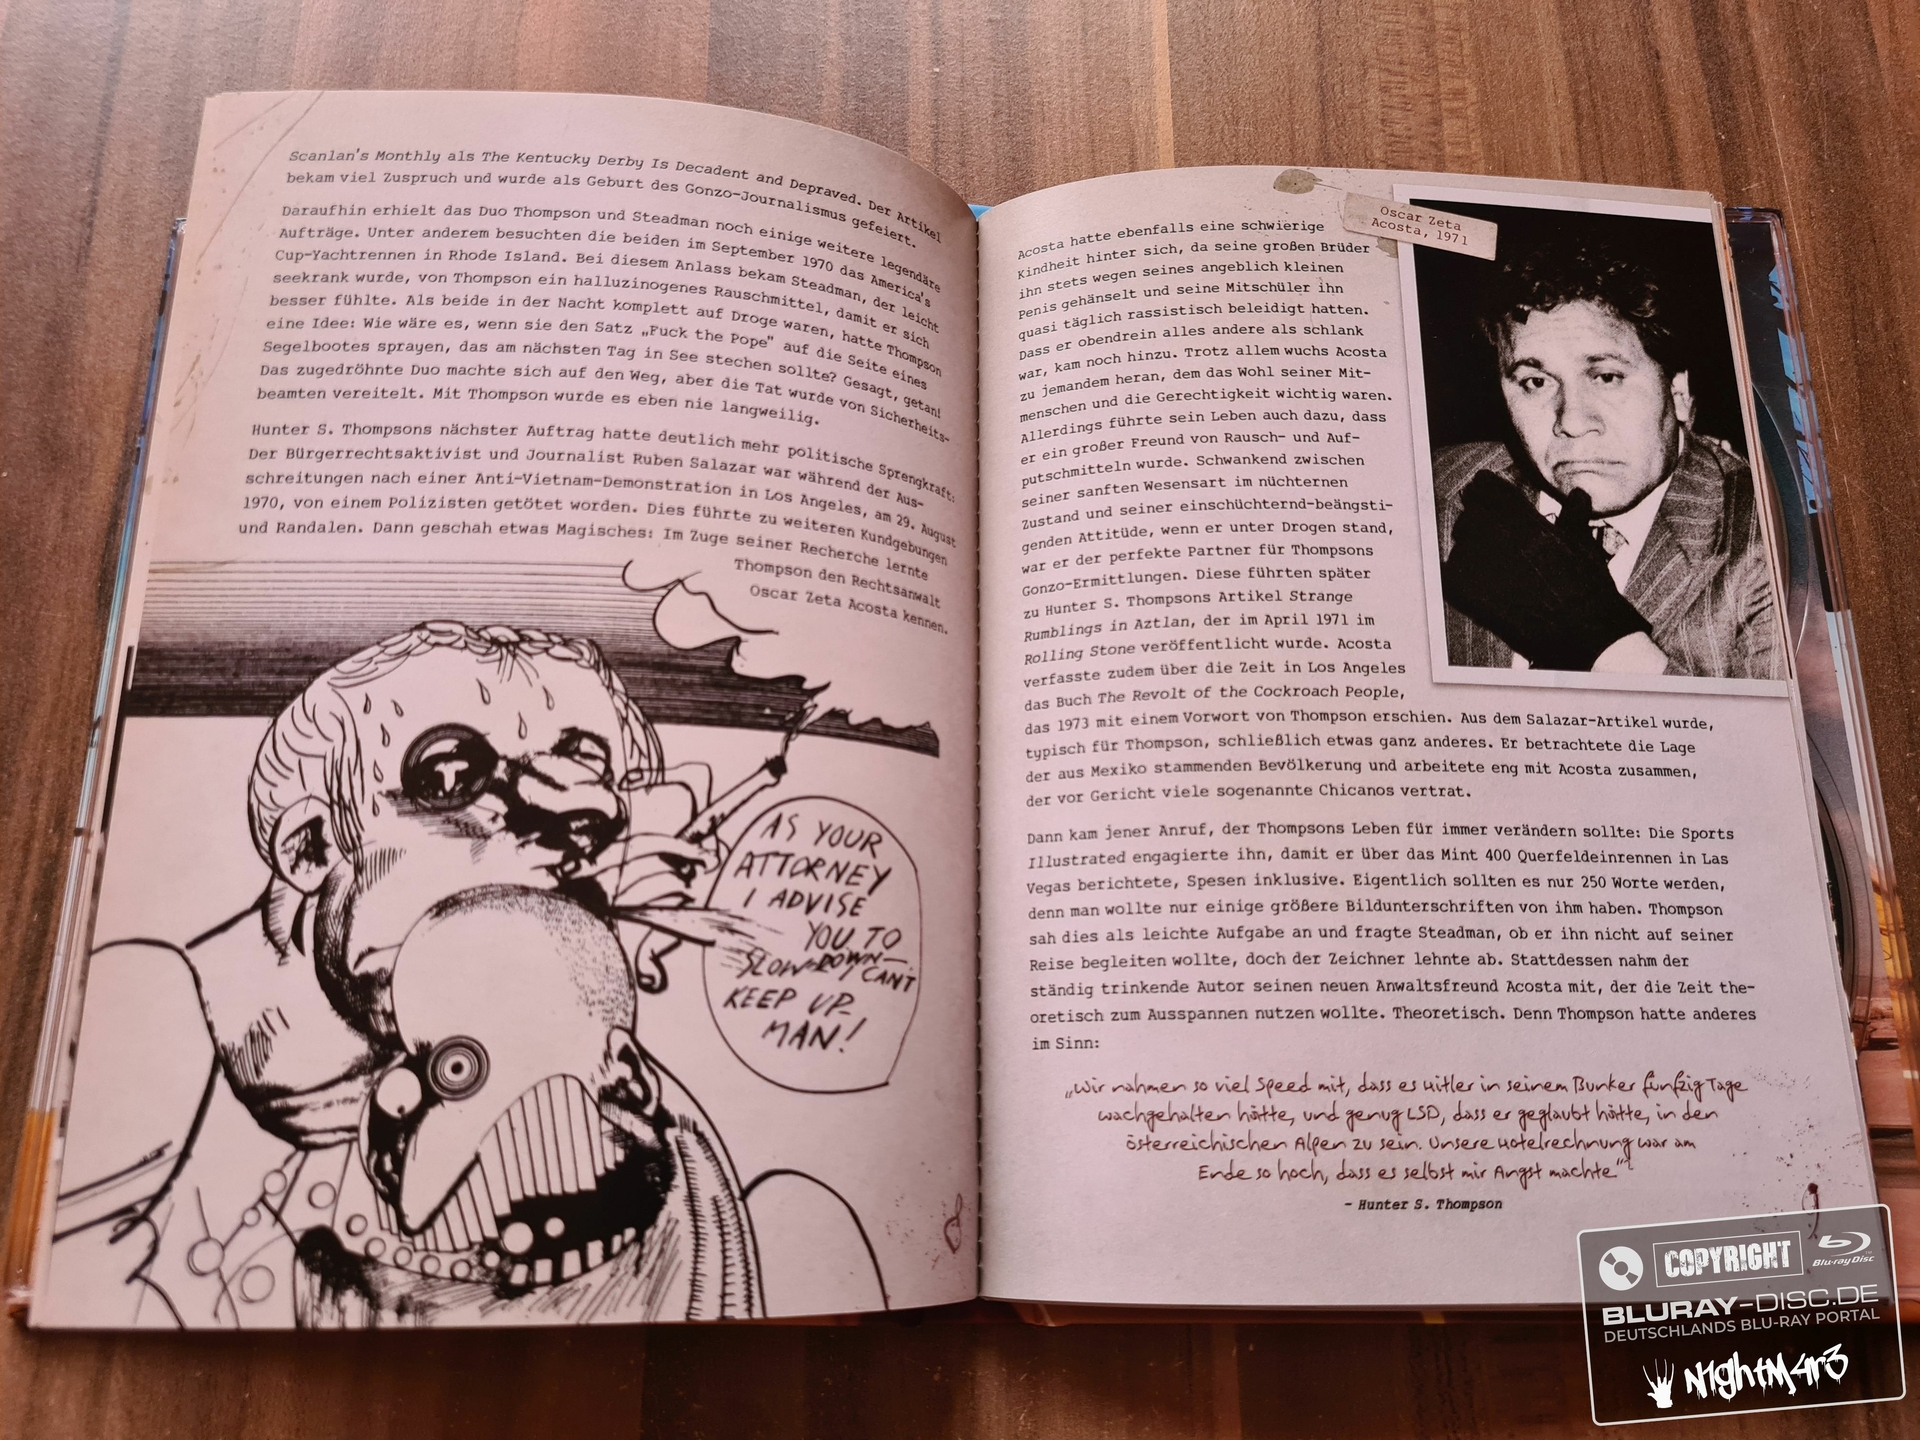 Scanlan's Monthly als The Kentucky Derby Is Decadent and Depraved. Der Artikel
bekam viel Zuspruch und wurde als Geburt des Gonzo-Journalismus gefeiert.
Daraufhin erhielt das Duo Thompson und Steadman noch einige weitere legendäre
Aufträge. Unter anderem besuchten die beiden im September 1970 das America's
Cup-Yachtrennen in Rhode Island. Bei diesem Anlass bekam Steadman, der leicht
seekrank wurde, von Thompson ein halluzinogenes Rauschmittel, damit er sich
besser fühlte. Als beide in der Nacht komplett auf Droge waren, hatte Thompson
eine Idee: Wie wäre es, wenn sie den Satz „Fuck the Pope" auf die Seite eines
Segelbootes sprayen, das am nächsten Tag in See stechen sollte? Gesagt, getan!
Das zugedröhnte Duo machte sich auf den Weg, aber die Tat wurde von Sicherheits-
beamten vereitelt. Mit Thompson wurde es eben nie langweilig.
Hunter S. Thompsons nächster Auftrag hatte deutlich mehr politische Sprengkraft:
Der Bürgerrechtsaktivist und Journalist Ruben Salazar war während der Aus-
schreitungen nach einer Anti-Vietnam-Demonstration in Los Angeles, am 29. August
1970, von einem Polizisten getötet worden. Dies führte zu weiteren Kundgebungen
und Randalen. Dann geschah etwas Magisches: Im Zuge seiner Recherche lernte
Thompson den Rechtsanwalt
Oscar Zeta Acosta kennen.
AS YOUR
ATTORNEY
I ADVISE
YOU TO
SLOW DOWN—
I CAN'T
KEEP UP
MAN!
8
Oscar Zeta
Acosta, 1971
Acosta hatte ebenfalls eine schwierige
Kindheit hinter sich, da seine großen Brüder
ihn stets wegen seines angeblich kleinen
Penis gehänselt und seine Mitschüler ihn
quasi täglich rassistisch beleidigt hatten.
Dass er obendrein alles andere als schlank
war, kam noch hinzu. Trotz allem wuchs Acosta
zu jemandem heran, dem das Wohl seiner Mit-
menschen und die Gerechtigkeit wichtig waren.
Allerdings führte sein Leben auch dazu, dass
er ein großer Freund von Rausch- und Auf-
putschmitteln wurde. Schwankend zwischen
seiner sanften Wesensart im nüchternen
Zustand und seiner einschüchternd-beängsti-
genden Attitüde, wenn er unter Drogen stand,
war er der perfekte Partner für Thompsons
Gonzo-Ermittlungen. Diese führten später
zu Hunter S. Thompsons Artikel Strange
Rumblings in Aztlan, der im April 1971 im
Rolling Stone veröffentlicht wurde. Acosta
verfasste zudem über die Zeit in Los Angeles
das Buch The Revolt of the Cockroach People,
das 1973 mit einem Vorwort von Thompson erschien. Aus dem Salazar-Artikel wurde,
typisch für Thompson, schließlich etwas ganz anderes. Er betrachtete die Lage
der aus Mexiko stammenden Bevölkerung und arbeitete eng mit Acosta zusammen,
der vor Gericht viele sogenannte Chicanos vertrat.
Dann kam jener Anruf, der Thompsons Leben für immer verändern sollte: Die Sports
Illustrated engagierte ihn, damit er über das Mint 400 Querfeldeinrennen in Las
Vegas berichtete, Spesen inklusive. Eigentlich sollten es nur 250 Worte werden,
denn man wollte nur einige größere Bildunterschriften von ihm haben. Thompson
sah dies als leichte Aufgabe an und fragte Steadman, ob er ihn nicht auf seiner
Reise begleiten wollte, doch der Zeichner lehnte ab. Stattdessen nahm der
ständig trinkende Autor seinen neuen Anwaltsfreund Acosta mit, der die Zeit the-
oretisch zum Ausspannen nutzen wollte. Theoretisch. Denn Thompson hatte anderes
im Sinn:
„Wir nahmen so viel Speed mit, dass es Hitler in seinem Bunker fünfzig Tage
wachgehalten hätte, und genug LSD, dass er geglaubt hätte, in den
österreichischen Alpen zu sein. Unsere Hotelrechnung war am
Ende so hoch, dass es selbst mir Angst machte"²
- Hunter S. Thompson
9
COPYRIGHT
Blu-ray Disc
BLURAY-DISC.DE
DEUTSCHLANDS BLU-RAY PORTAL
N1ghtM4r3